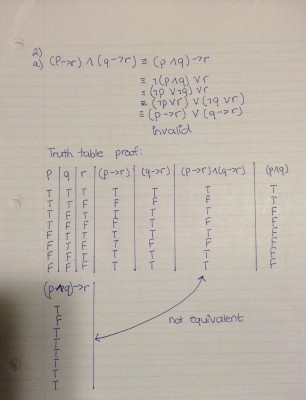 2)
a) (p→r) ∧ (q→r) ≡ (p∧q)→r
≡ ¬(p∧q) ∨r
≡ (¬p ∨¬q) ∨r
≡ (¬p∨r) ∨ (¬q ∨r)
≡ (p→r) ∨ (q→r)
invalid
Truth table proof:
p q r (p→r) (q→r) (p→r)∧(q→r) (p∧q)
T T T T T T T
T T F F F F T
T F T T T T F
T F F F T F F
F T T T T T F
F T F T F F F
F F T T T T F
F F F T T T F
(p∧q)→r
T
F
T
T
T
T
T
T
not equivalent